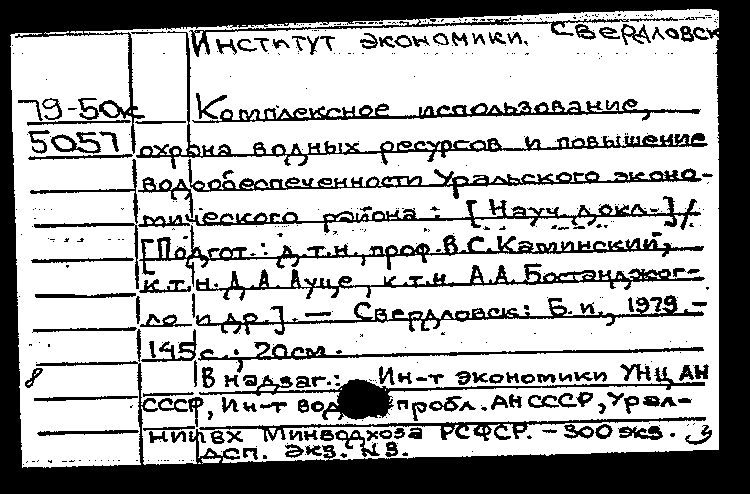 Институт экономики. Свердловск
79-50к Комплексное использование,
5057 охрона водных ресурсов и повышение
водообеспеченности Уральского эконо-
мического района: [Науч. докл.]/
[Подгот.: д.т.н., проф. В.С. Каминский,
к.т.н. Д.А. Ауце, к.т.н. А.А. Бостанджог-
ло и др.]. — Свердловск: Б.и., 1979.-
145 с.; 20см.
8 В надзаг.: Ин-т экономики УНЦ АН
СССР, Ин-т вод пробл. АН СССР, Урал-
НИИВХ Минводхоза РСФСР. - 300 экз.
ДСП. Экз. N3.